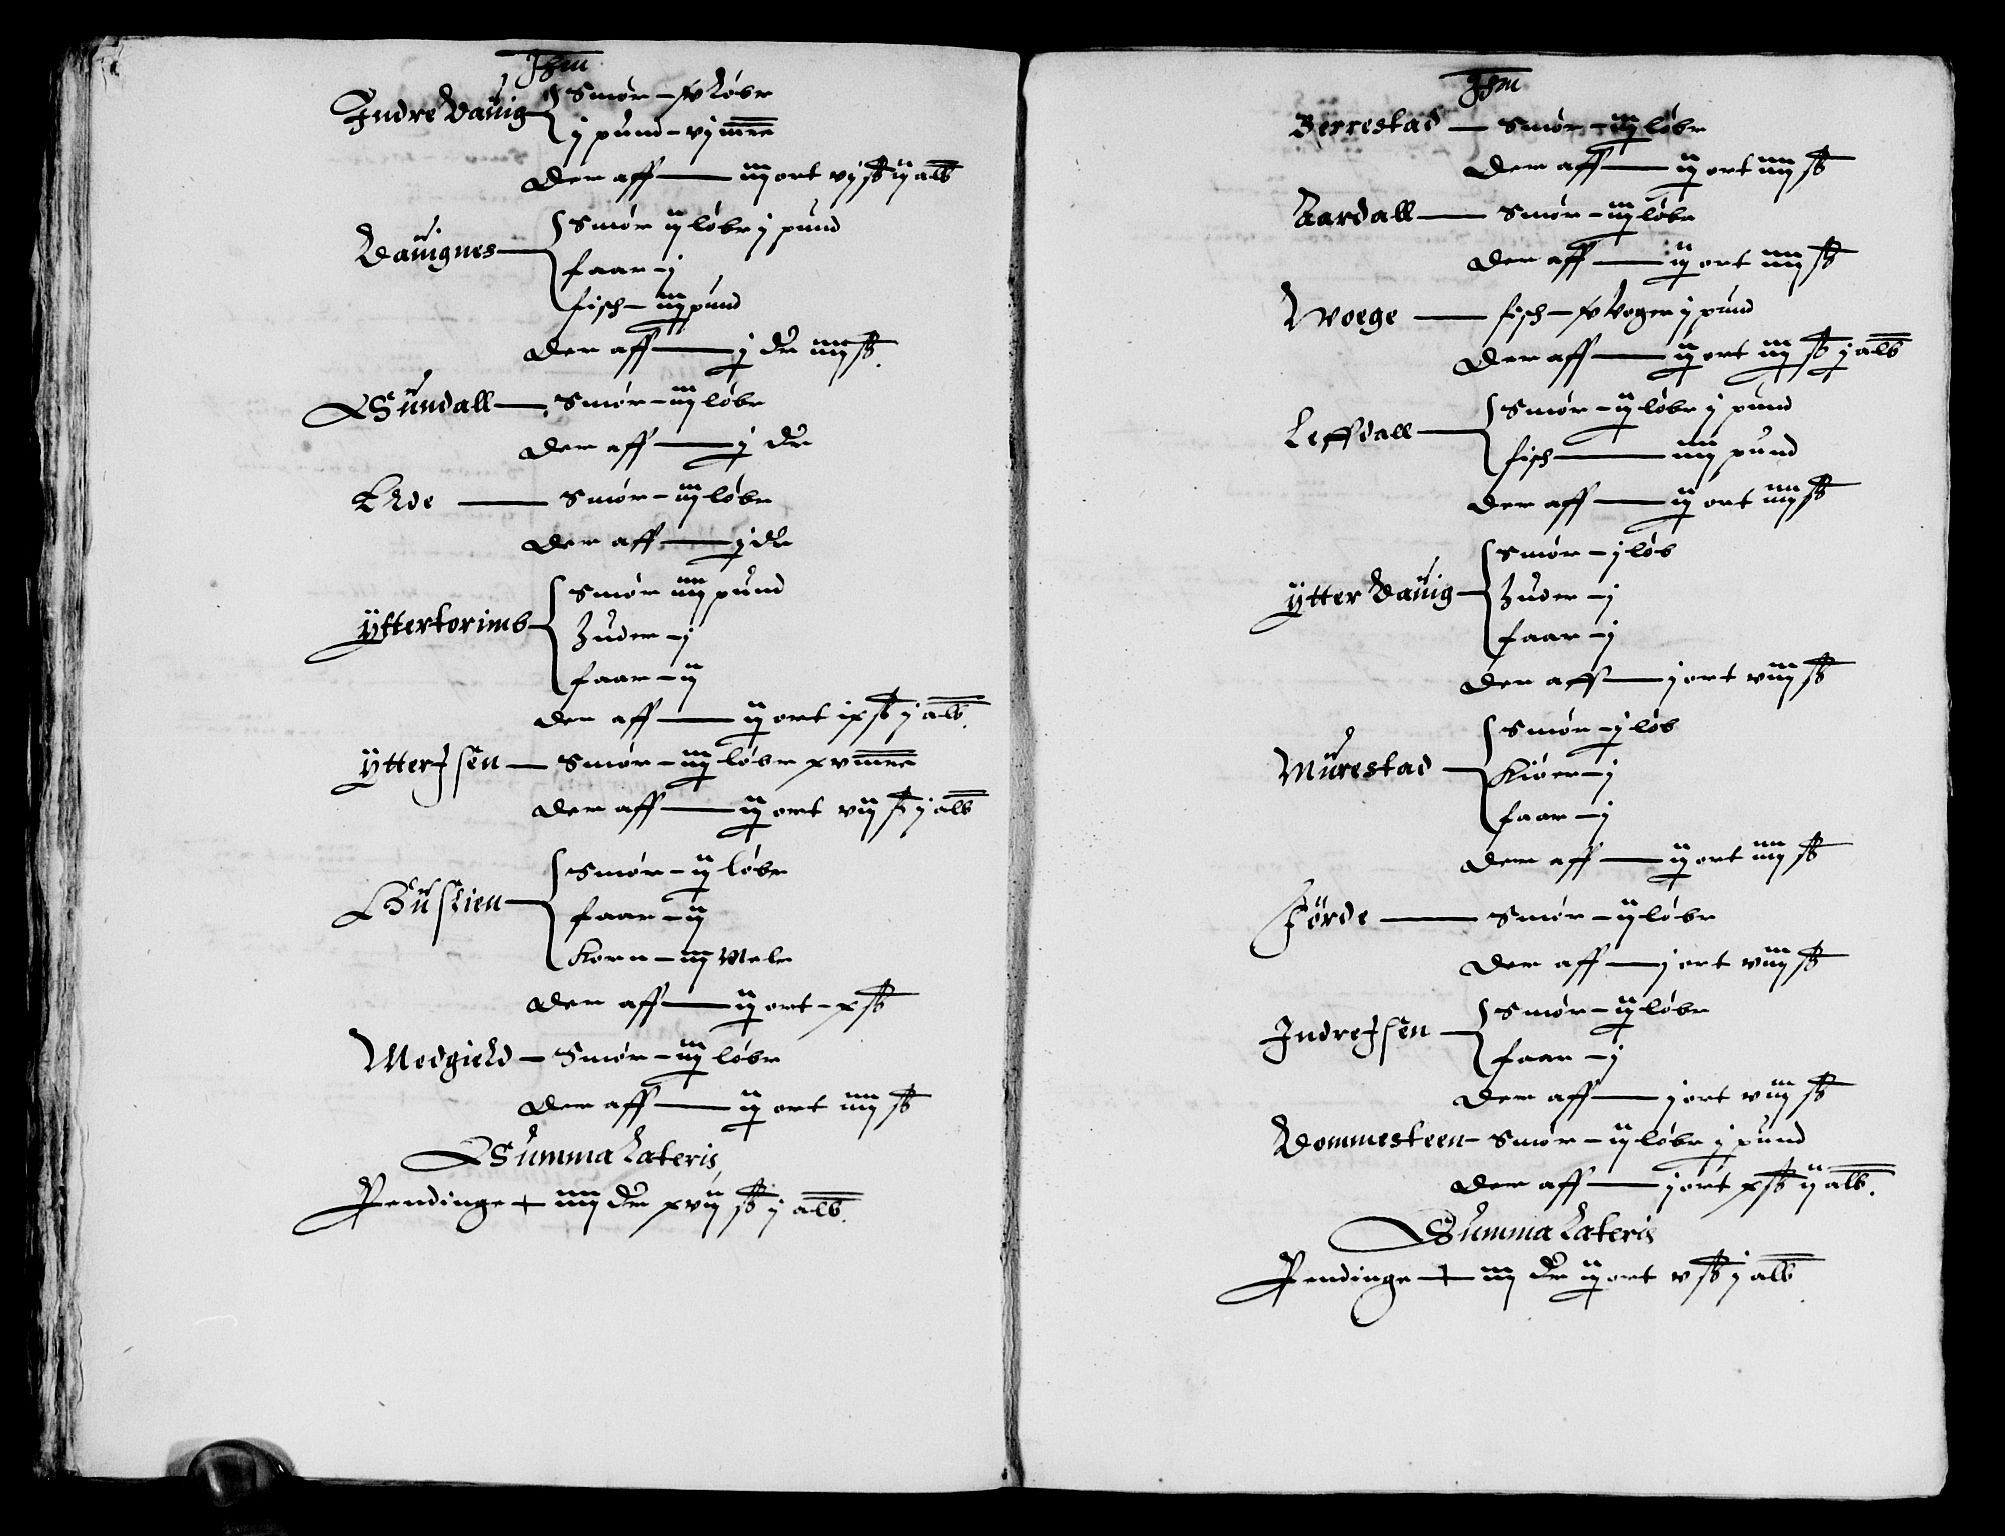 Jtem
Indre Dauig Smør – iv Løbe
j pund – vj mrc
Der aff — iij ort vij ß ij alb
Dauignes — Smør ij løbe j pund
faar – j
fisch – iij pund
Der aff — j dr iiij ß.
Sundall — Smør – iij løbe
Der aff — j dr
Eide — Smør – iij løbe
Der aff — j dr
Yttertorims Smør iiij pund
Huder – j
faar – ij
Der aff — ij ort ix ß j alb.
Ytter Jsen — Smør – iij løbe xv mrc
Der aff — ij ort vij ß j alb
Smør – ij løbe
faar – ij
Korn – iij Mele
Der aff — ij ort – x ß
Modgield — Smør – iij løbe
Der aff — ij ort iiij ß
Summa Lateris
Pendinge + iiij dr xvij ß j alb.
Jtem
Berrestad — Smør – iij løbe
Der aff — ij ort iiij ß
Aardall — Smør – iij løbe
Der aff — ij ort iiij ß
Woege — fisch – iv Voger j pund
Der aff — ij ort iij ß j alb
Leffdall — Smør – ij løbe j pund
fisch — iiij pund
Der aff — ij ort iiij ß
Ytter Dauig — Smør – j løb
Huder – j
faar – j
Der aff — j ort viij ß
Murestad — Smør – j løb
Kiøer – j
faar – j
Der aff — ij ort iiij ß
Førde — Smør – ij løbe
Der aff — j ort viij ß
Indre Jsen — Smør – ij løbe
faar – j
Der aff — j ort viij ß
Dommesteen – Smør – ij løbe j pund
Der aff — j ort x ß ij alb.
Summa Lateris
Pendinge + iiij dr ij ort v ß j alb